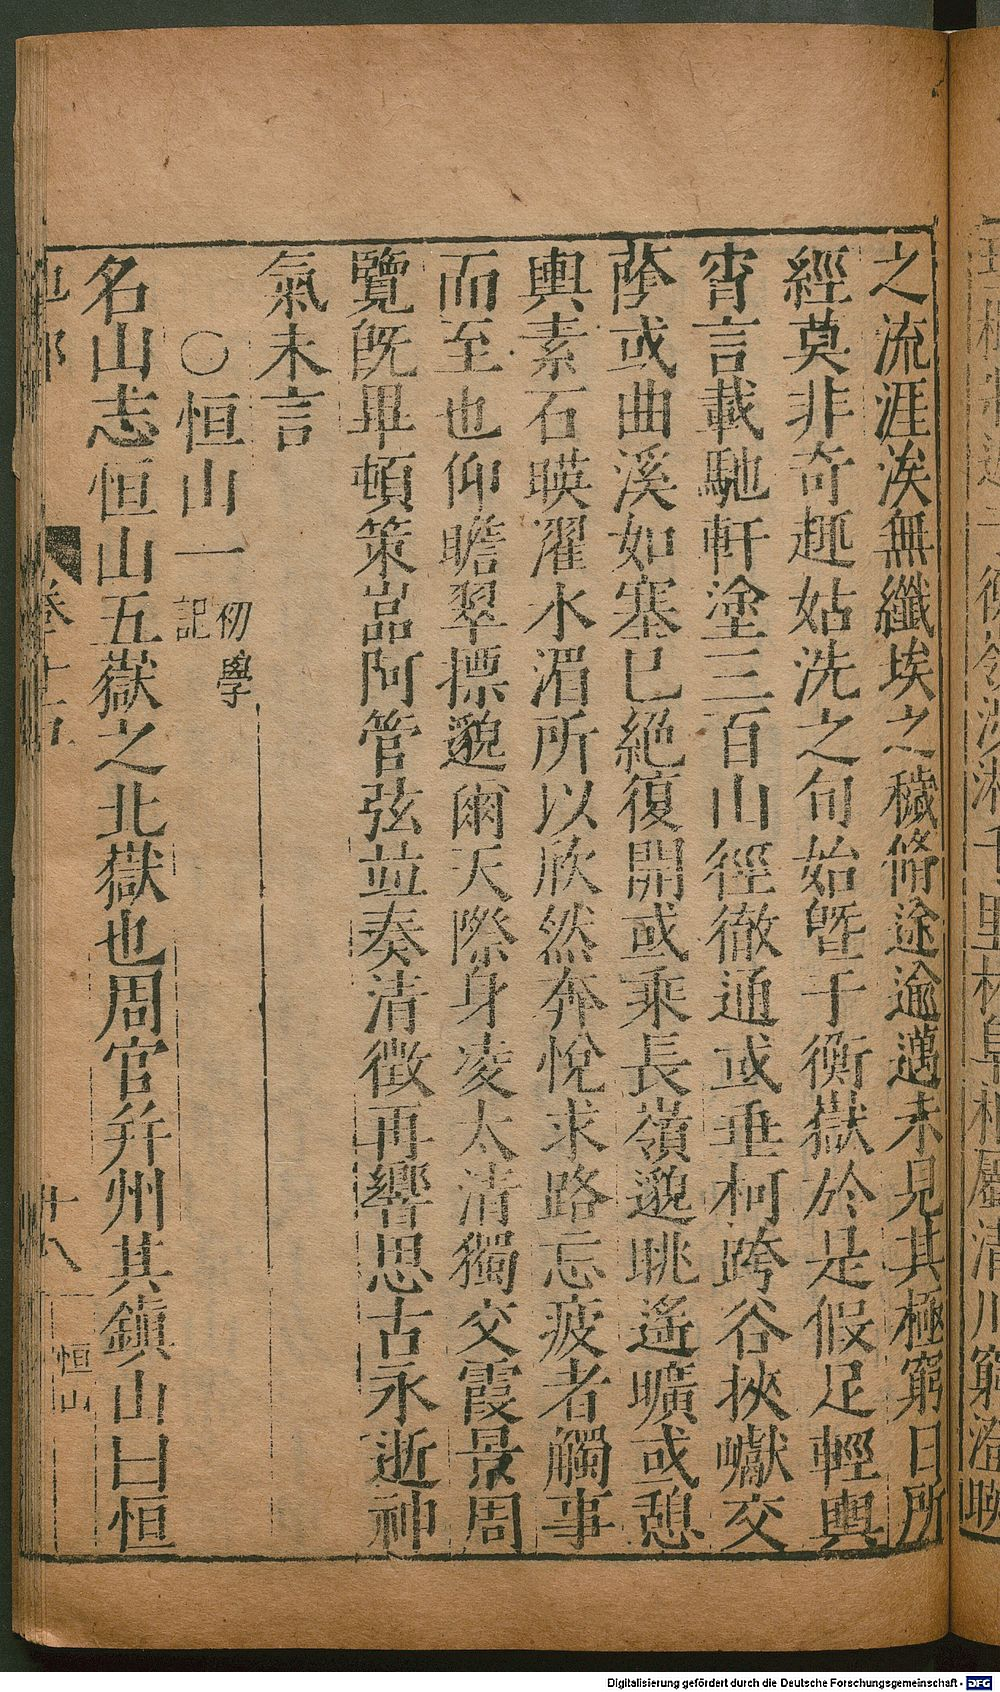 之流涯涘無纖埃之穢脩途逾邁未見其極窮日所
經莫非奇趣姑洗之旬始曁于衡嶽於是假足輕輿
宵言載馳軒塗三百山徑徹通或垂柯跨谷挾巘交
蔭或曲溪如塞已絕復開或乘長嶺邈眺遙曠或憩
輿素石映濯水湄所以欣然奔悅求路忘疲者觸事
而至也仰瞻翠摽邈爾天際身凌太清獨交霞景周
覽旣畢頓策嵓阿管弦並奏清徵再響思古永逝神
氣未言
○恒山一 初學記
名山志恒山五嶽之北嶽也周官并州其鎭山曰恒
十八
恒山
Digitalisierung gefördert durch die Deutsche Forschungsgemeinschaft - DFG